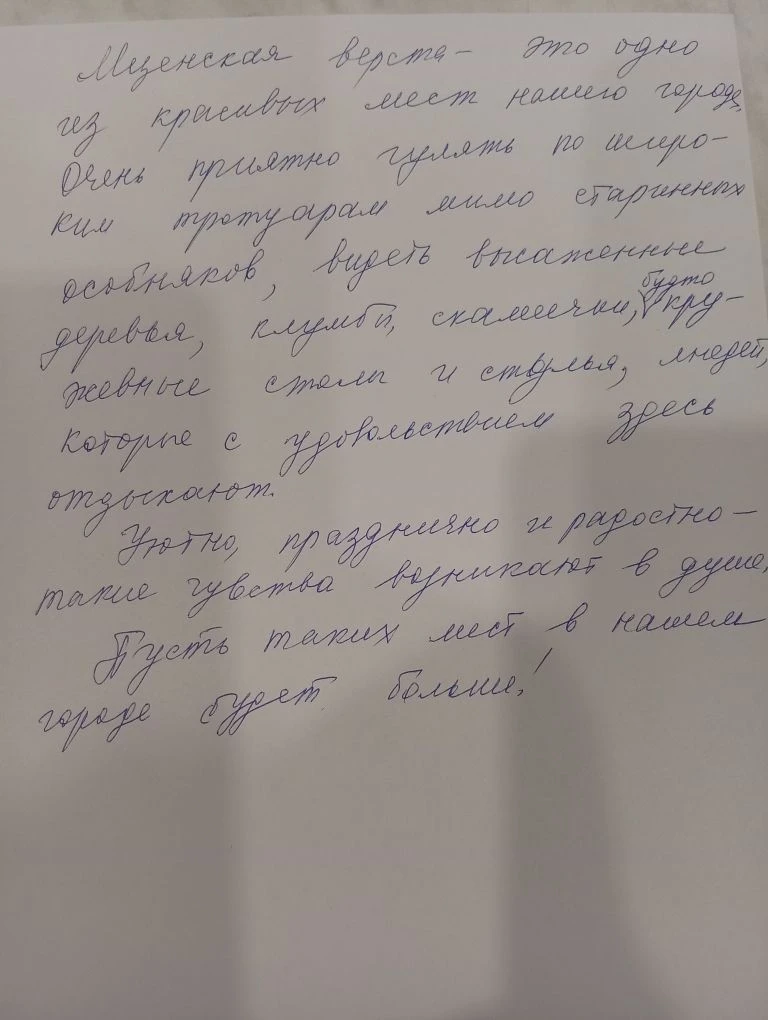 Мценская верста - это одно
из красивых мест нашего города.
Очень приятно гулять по широ-
ким тротуарам мимо старинных
особняков, видеть высаженные
деревья, клумбы, скамеечки, будто кру-
жевные столы и стулья, людей,
которые с удовольствием здесь
отдыхают.
Уютно, празднично и радостно -
такие чувства возникают в душе.
Пусть таких мест в нашем
городе будет больше!